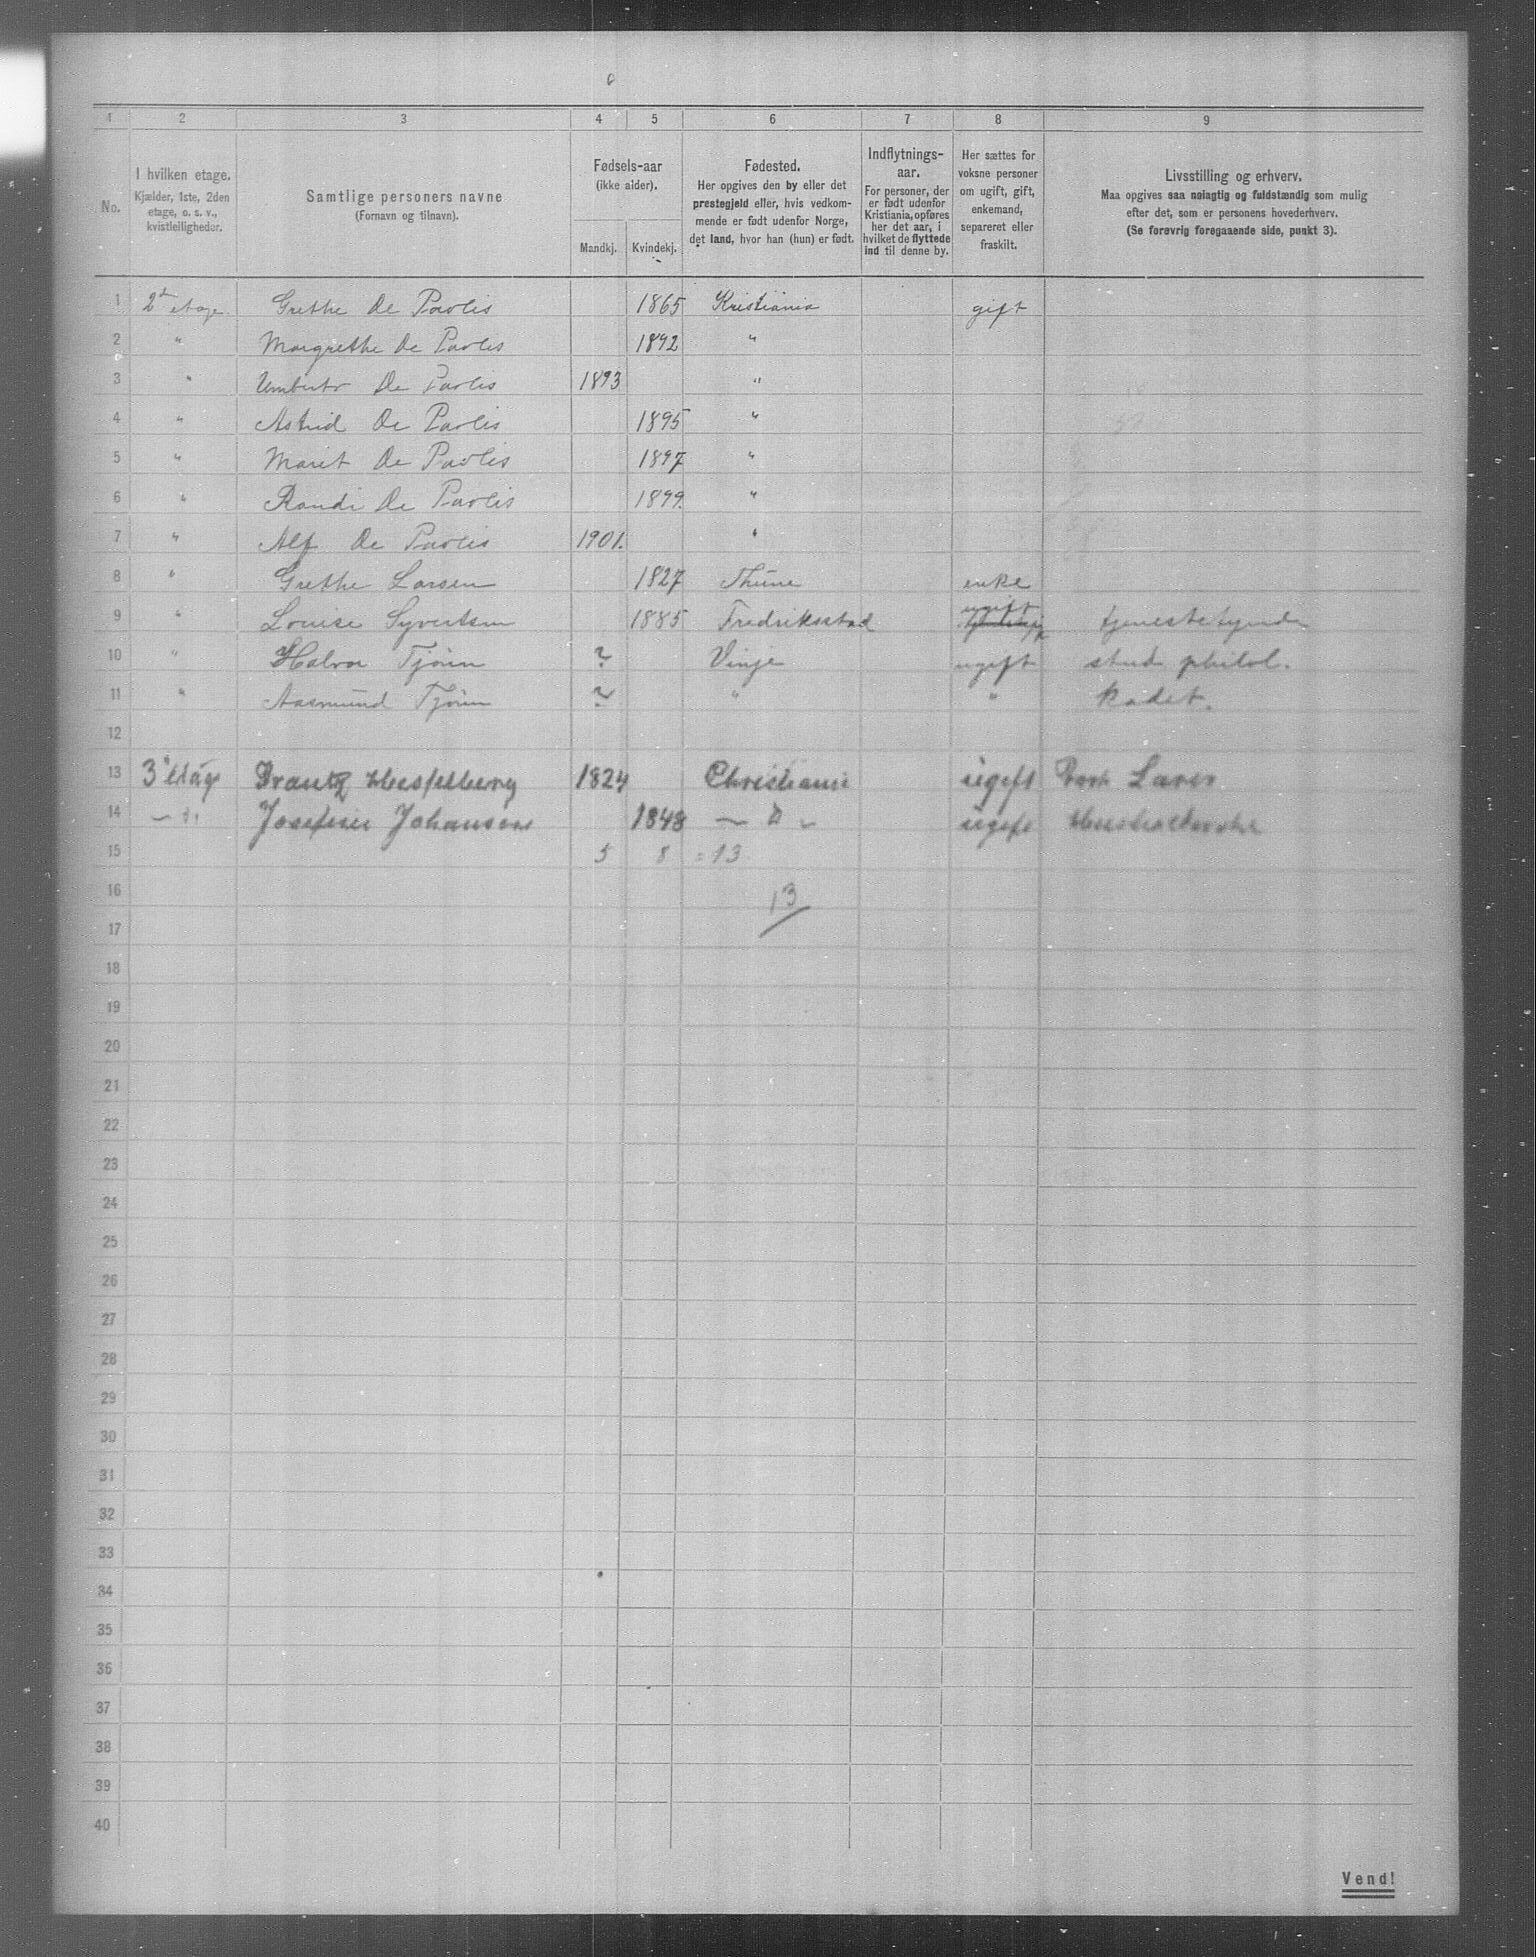 1 2 3 4 5 6 7 8 9
No.
I hvilken etage.
Kjælder, 1ste, 2den
etage, o. s. v.,
kvistleiligheder.
Samtlige personers navne
(Fornavn og tilnavn).
Fødsels-aar
(ikke alder).
Mandkj. Kvindekj.
Fødested.
Her opgives den by eller det
prestegjeld eller, hvis vedkom-
mende er født udenfor Norge,
det land, hvor han (hun) er født.
Indflytnings-
aar.
For personer, der
er født udenfor
Kristiania, opføres
her det aar, i
hvilket de flyttede
ind til denne by.
Her sættes for
voksne personer
om ugift, gift,
enkemand,
separeret eller
fraskilt.
Livsstilling og erhverv.
Maa opgives saa nøiagtig og fuldstændig som mulig
efter det, som er personens hovederhverv.
(Se forøvrig foregaaende side, punkt 3).
1 2d etage. Grethe De Paolis 1865 Kristiania gift
2 " Margrethe De Paolis 1892 "
3 " Umberto De Paolis 1893 "
4 " Astrid De Paolis 1895 "
5 " Marit De Paolis 1897 "
6 " Randi De Paolis 1899. "
7 " Alf De Paolis 1901. "
8 " Grethe Larsen 1827 Thune enke
9 " Louise Syvertsen 1885 Fredriksstad ugift tjenestetjende
10 " Halvor Tjønn ? Vinje ugift stud. philol.
11 " Aasmund Tjønn ? " " kadet.
12
13 3 etage Frantz Hesselberg 1824 Christiania ugift
14 — " Josefine Johansen 1848 — " — ugift
15 5 8 = 13
16 13
17
18
19
20
21
22
23
24
25
26
27
28
29
30
31
32
33
34
35
36
37
38
39
40
Vend!